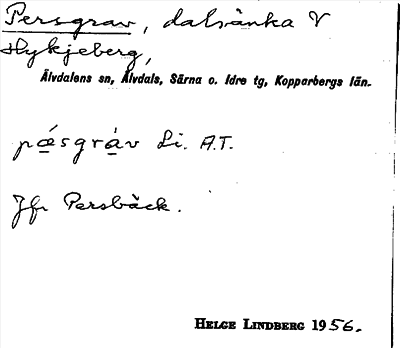 Persgrav, dalsänka V
Hykjeberg,
Älvdalens sn, Älvdals, Särna o. Idre tg, Kopparbergs län.
pǽsgràv Li. A.T.
Jfr Persbäck.
HELGE LINDBERG 1956.